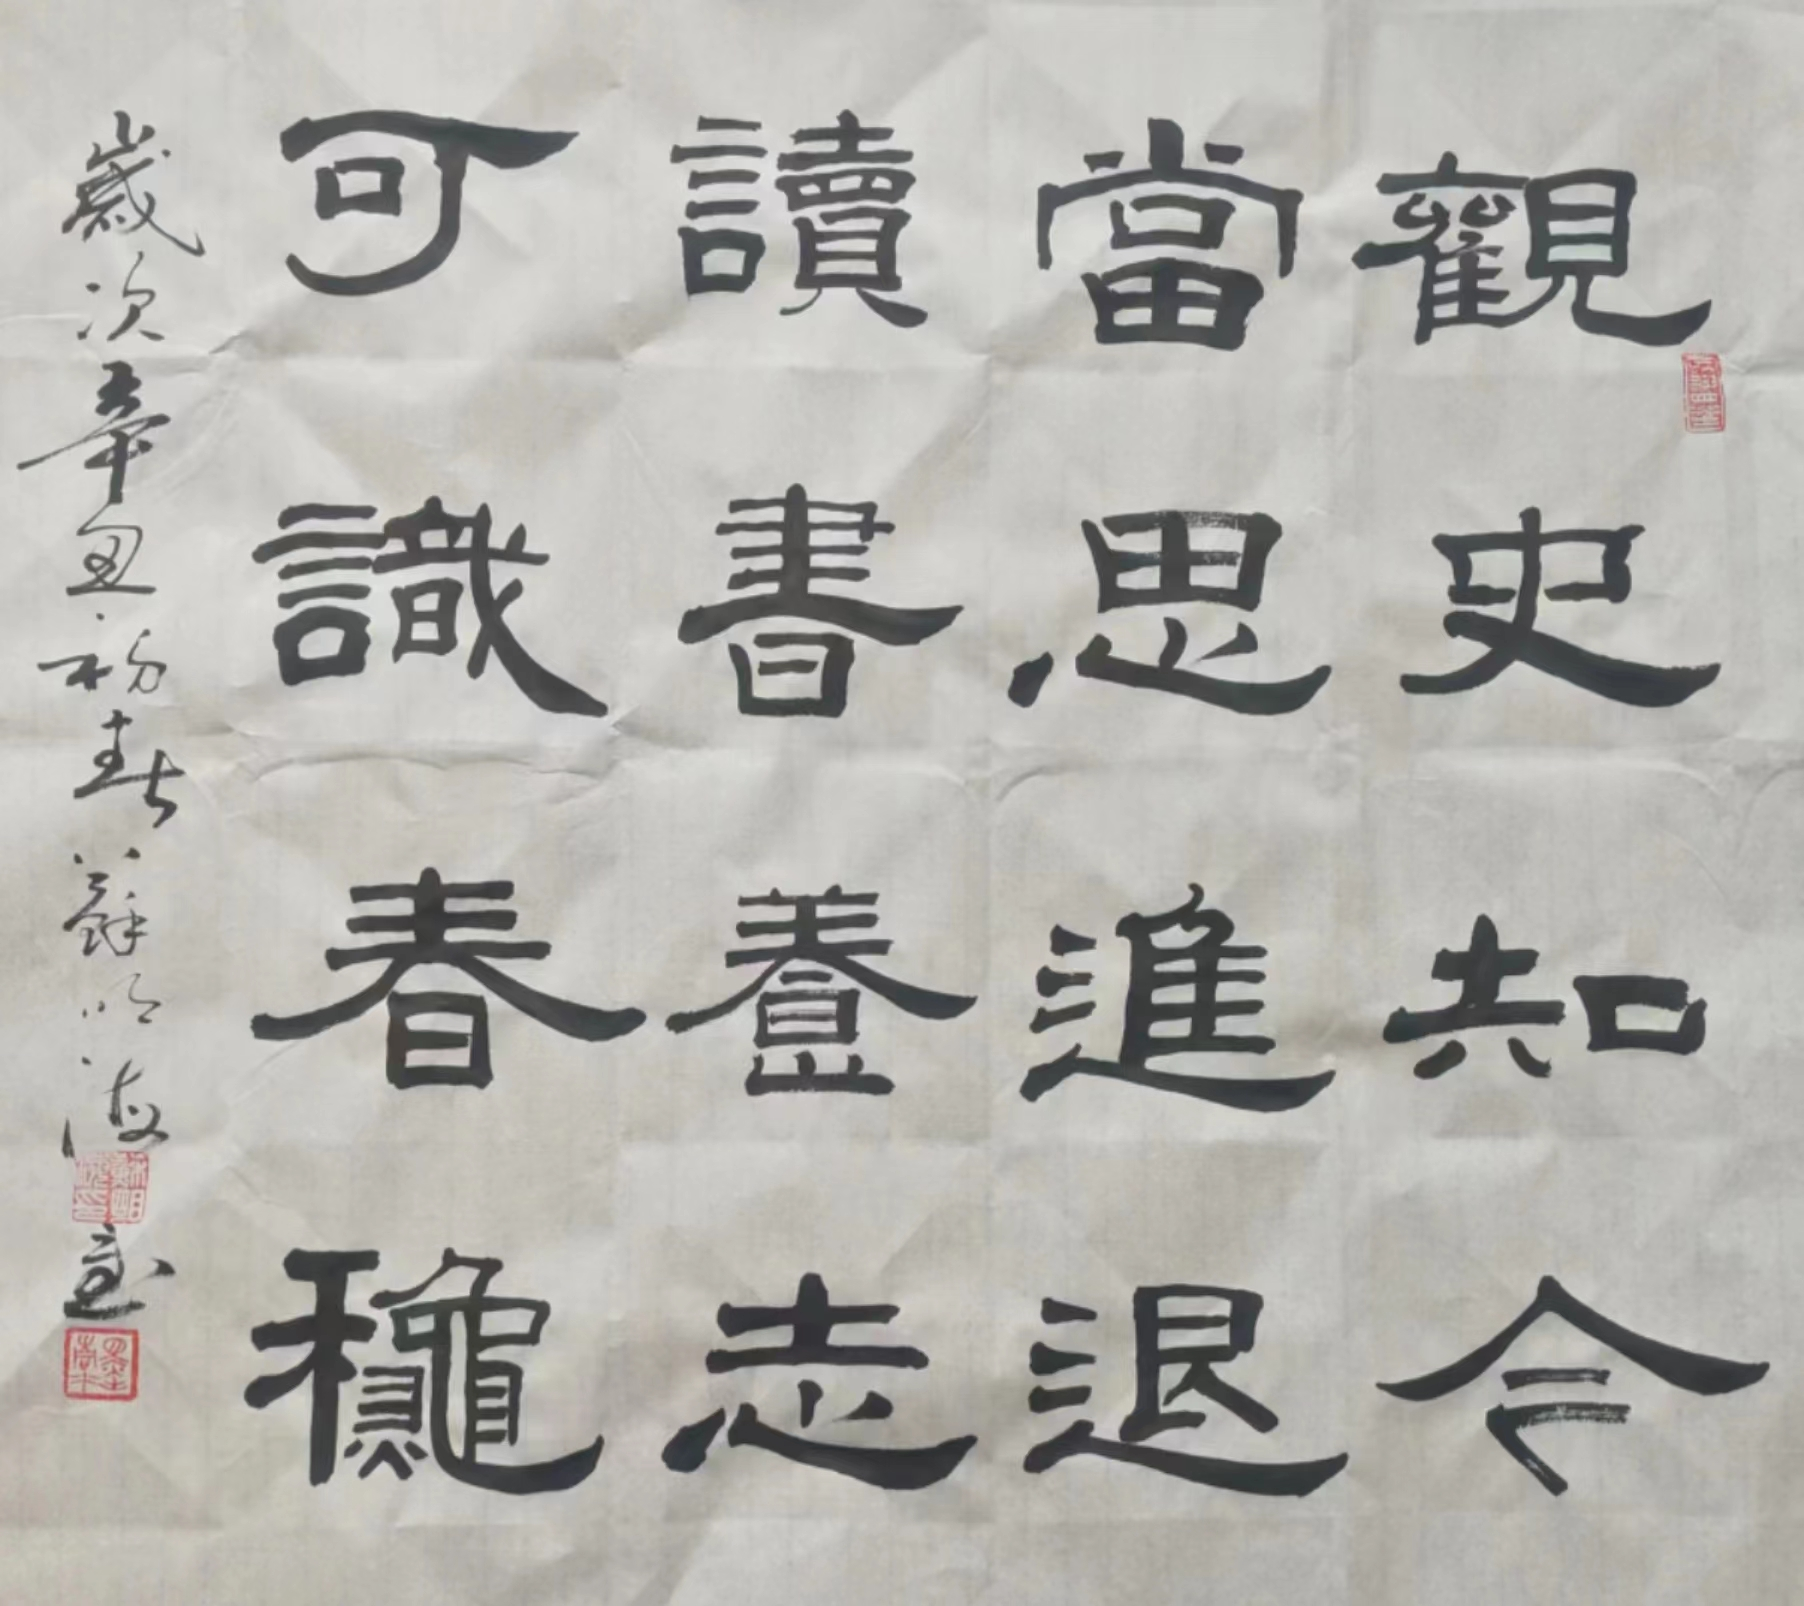 觀史知今
當思進退
讀書養志
可識春龝
歲次辛丑初春蘇明海